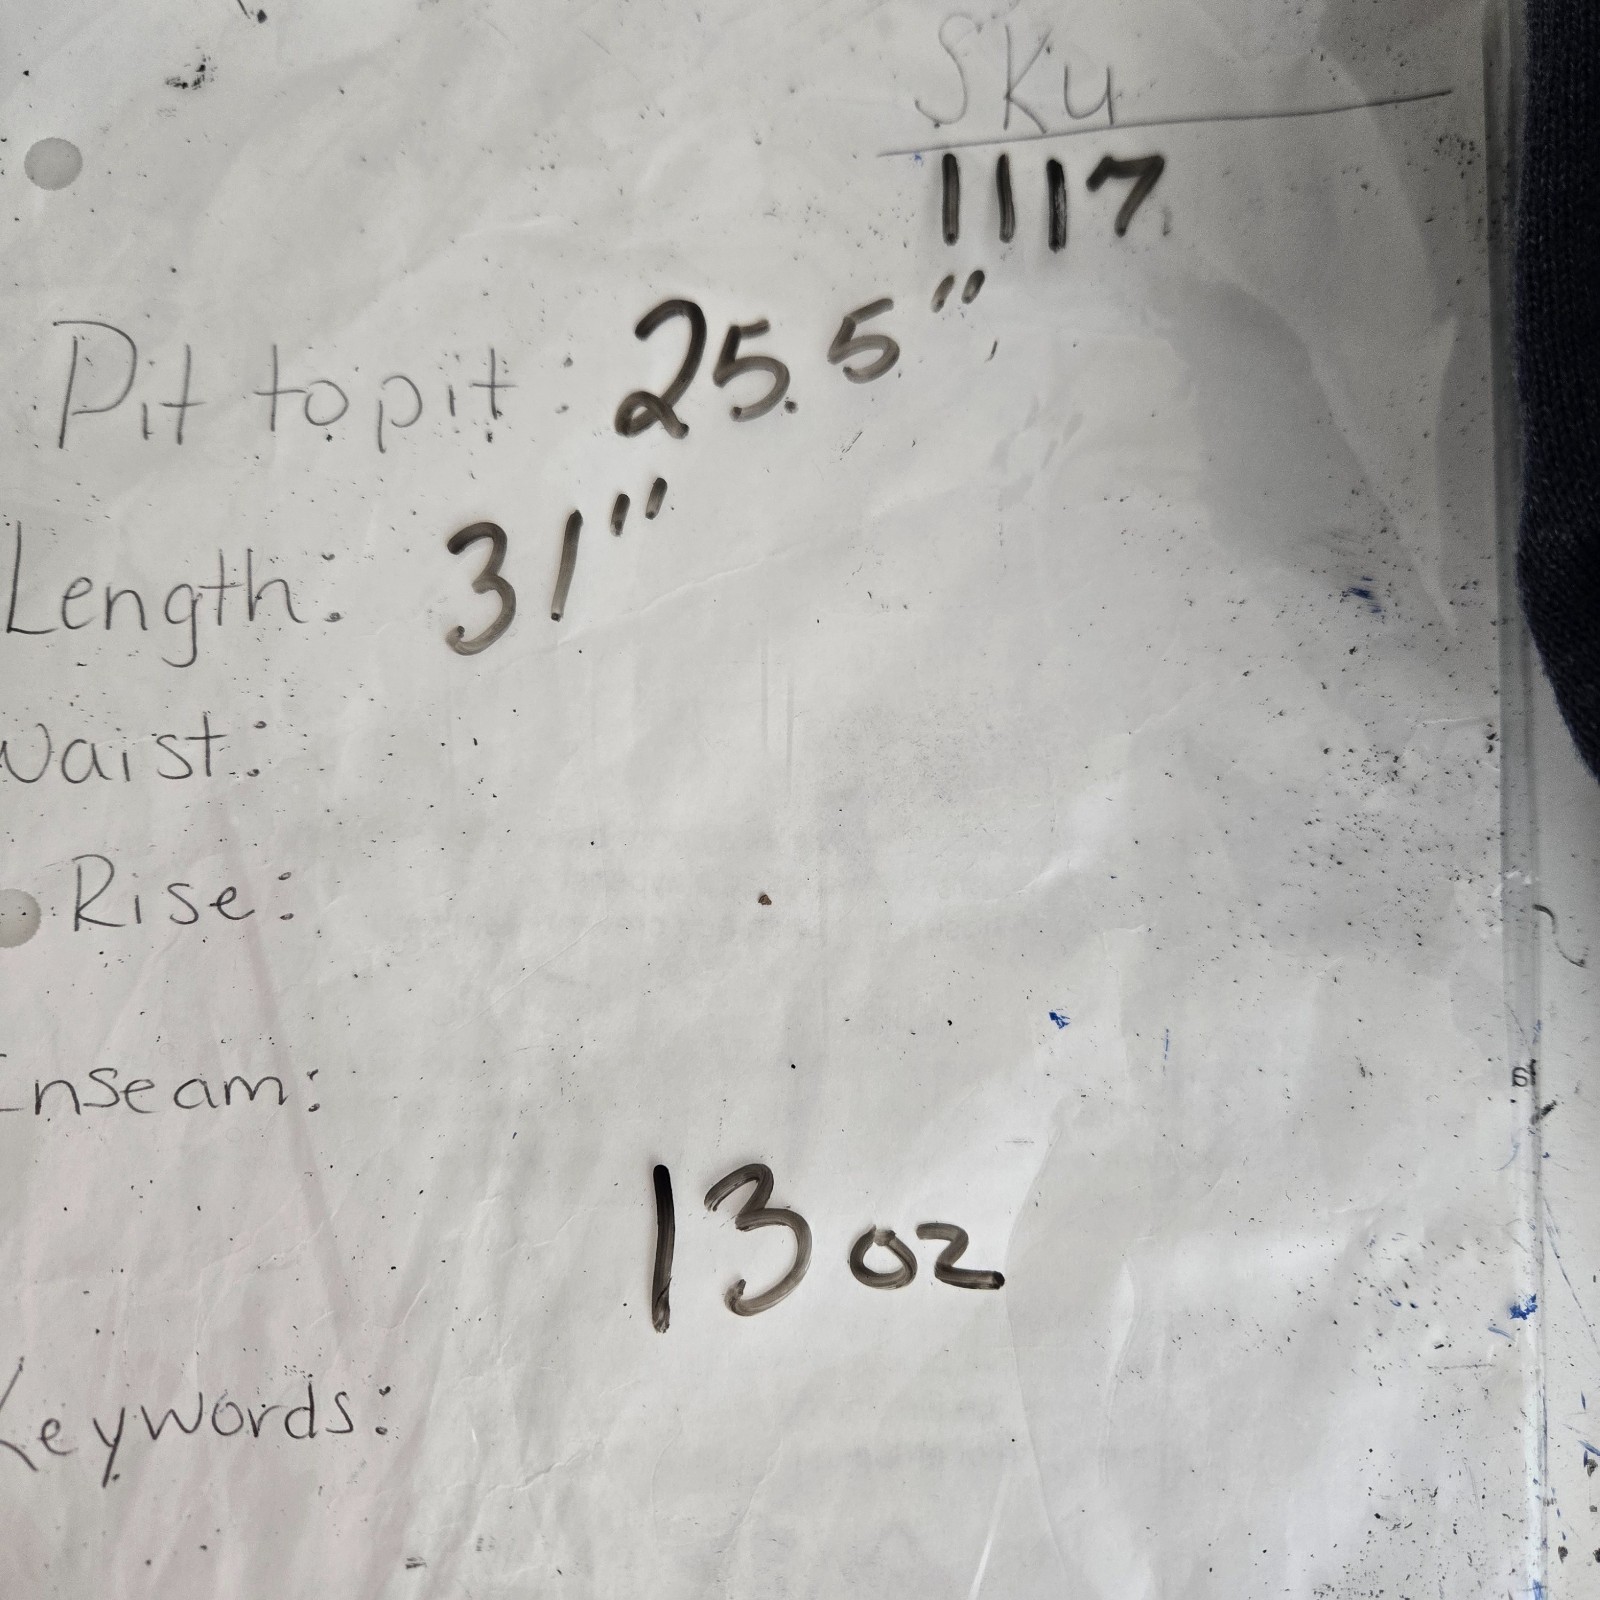 SKu
1117
Pit to pit: 25.5"
Length: 31"
Waist:
Rise:
Inseam:
13 oz
Keywords: